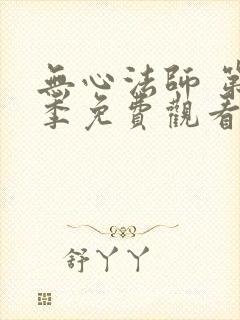 無心法師 第
季免費觀看
舒丫丫